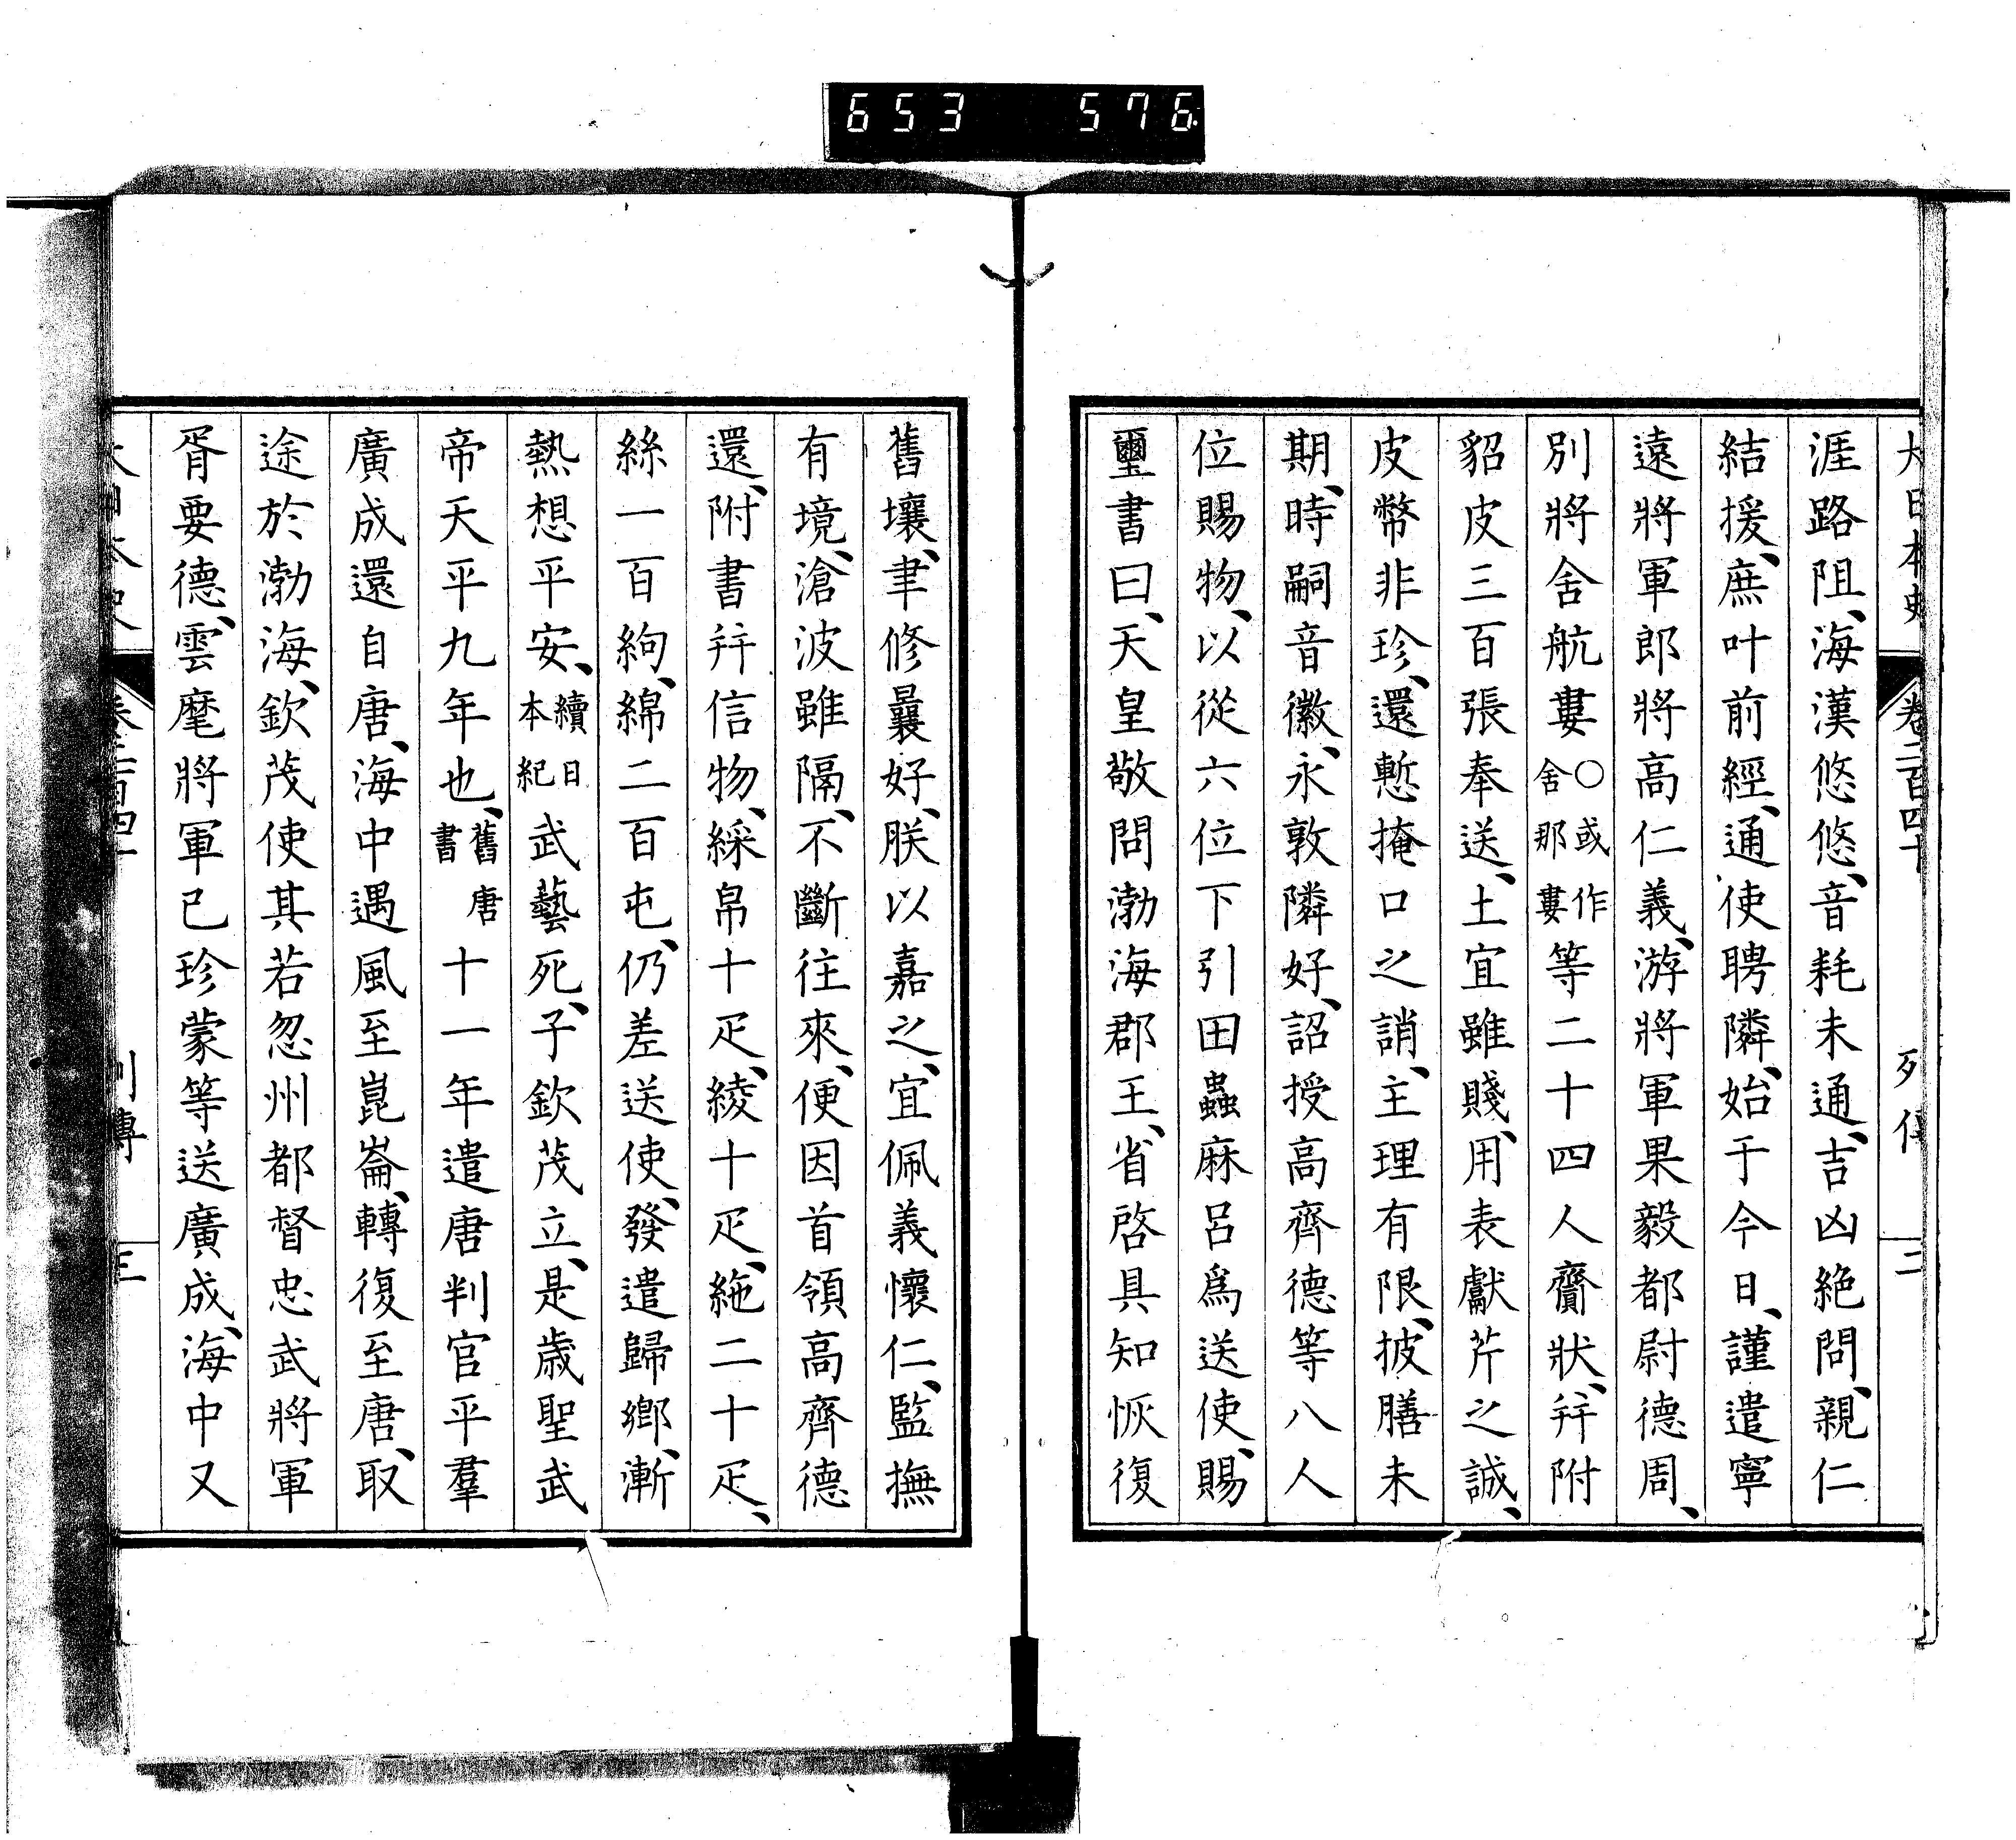 653 576
大日本史 卷二百四十 列傳 二
涯路阻、海漢悠悠、音耗未通、吉凶絶問、親仁
結援、庶叶前經、通使聘隣、始于今日、謹遣寧
遠將軍郎將高仁義、游將軍果毅都尉德周、
別將舍航婁○或作舍那婁等二十四人齎狀、幷附
貂皮三百張奉送、土宜雖賤、用表獻芹之誠、
皮幣非珍、還慙掩口之誚、主理有限、披膳未
期、時嗣音徽、永敦隣好、詔授高齊德等八人
位賜物、以從六位下引田蟲麻呂爲送使、賜
璽書曰、天皇敬問渤海郡王、省啓具知恢復
舊壤、聿修曩好、朕以嘉之、宜佩義懷仁、監撫
有境、滄波雖隔、不斷往來、便因首領高齊德
還、附書幷信物、綵帛十疋、綾十疋、絁二十疋、
絲一百絇、綿二百屯、仍差送使、發遣歸鄕、漸
熱想平安、續日本紀武藝死、子欽茂立、是歲聖武
帝天平九年也、舊唐書十一年遣唐判官平羣
廣成還自唐、海中遇風至崑崙、轉復至唐、取
途於渤海、欽茂使其若忽州都督忠武將軍
胥要德、雲麾將軍已珍蒙等送廣成、海中又
大日本史 卷二百四十 列傳 三